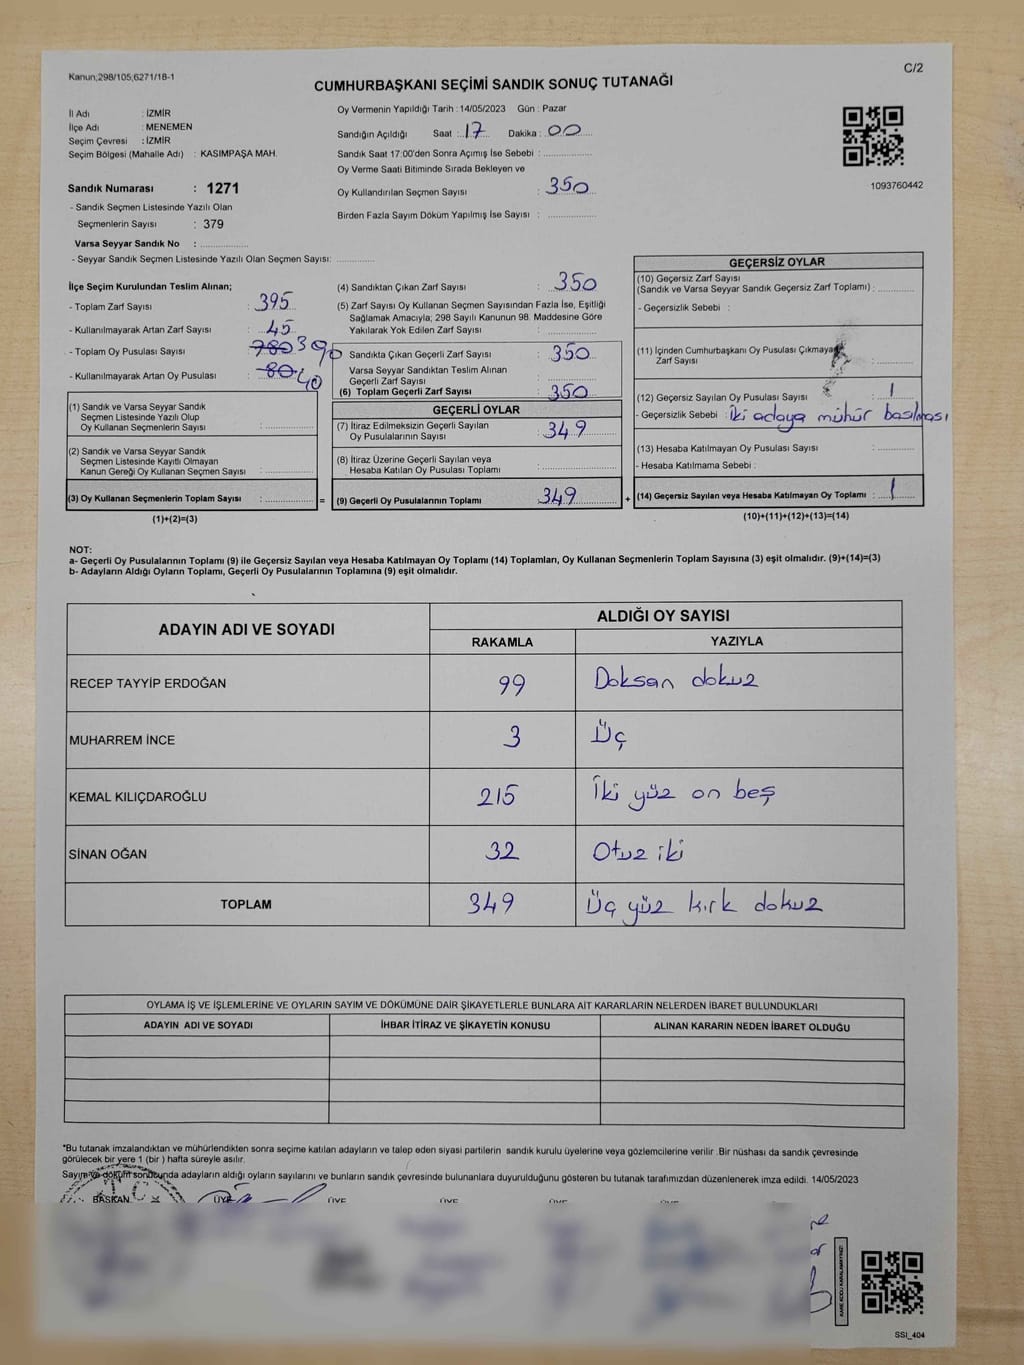 Kanun;298/105,6271/18-1
C/2
CUMHURBAŞKANI SEÇİMİ SANDIK SONUÇ TUTANAĞI
İl Adı : İZMİR
İlçe Adı : MENEMEN
Seçim Çevresi : İZMİR
Seçim Bölgesi (Mahalle Adı) : KASIMPAŞA MAH.
Sandık Numarası : 1271
- Sandık Seçmen Listesinde Yazılı Olan
Seçmenlerin Sayısı : 379
Varsa Seyyar Sandık No : ................
- Seyyar Sandık Seçmen Listesinde Yazılı Olan Seçmen Sayısı: .............
Oy Vermenin Yapıldığı Tarih : 14/05/2023 Gün : Pazar
Sandığın Açıldığı Saat : 17 Dakika : 00
Sandık Saat 17:00'den Sonra Açımış İse Sebebi : ................
Oy Verme Saati Bitiminde Sırada Bekleyen ve
Oy Kullandırılan Seçmen Sayısı : 350
Birden Fazla Sayım Döküm Yapılmış İse Sayısı : ................
1093760442
İlçe Seçim Kurulundan Teslim Alınan;
- Toplam Zarf Sayısı : 395
- Kullanılmayarak Artan Zarf Sayısı : 45
- Toplam Oy Pusulası Sayısı : 780 390
- Kullanılmayarak Artan Oy Pusulası : 80 40
(1) Sandık ve Varsa Seyyar Sandık
Seçmen Listesinde Yazılı Olup
Oy Kullanan Seçmenlerin Sayısı : ................
(2) Sandık ve Varsa Seyyar Sandık
Seçmen Listesinde Kayıtlı Olmayan
Kanun Gereği Oy Kullanan Seçmen Sayısı : ................
(3) Oy Kullanan Seçmenlerin Toplam Sayısı : ................ =
(1)+(2)=(3)
(4) Sandıktan Çıkan Zarf Sayısı : 350
(5) Zarf Sayısı Oy Kullanan Seçmen Sayısından Fazla İse, Eşitliği
Sağlamak Amacıyla; 298 Sayılı Kanunun 98. Maddesine Göre
Yakılarak Yok Edilen Zarf Sayısı : ................
Sandıkta Çıkan Geçerli Zarf Sayısı : 350
Varsa Seyyar Sandıktan Teslim Alınan
Geçerli Zarf Sayısı : ................
(6) Toplam Geçerli Zarf Sayısı : 350
GEÇERLİ OYLAR
(7) İtiraz Edilmeksizin Geçerli Sayılan
Oy Pusulalarının Sayısı : 349
(8) İtiraz Üzerine Geçerli Sayılan veya
Hesaba Katılan Oy Pusulası Toplamı : ................
(9) Geçerli Oy Pusulalarının Toplamı : 349 +
GEÇERSİZ OYLAR
(10) Geçersiz Zarf Sayısı
(Sandık ve Varsa Seyyar Sandık Geçersiz Zarf Toplamı) : .............
- Geçersizlik Sebebi :
(11) İçinden Cumhurbaşkanı Oy Pusulası Çıkmayan
Zarf Sayısı : .............
(12) Geçersiz Sayılan Oy Pusulası Sayısı : 1
- Geçersizlik Sebebi : İki adaya mühür basılması
(13) Hesaba Katılmayan Oy Pusulası Sayısı : .............
- Hesaba Katılmama Sebebi :
(14) Geçersiz Sayılan veya Hesaba Katılmayan Oy Toplamı : 1
(10)+(11)+(12)+(13)=(14)
NOT:
a- Geçerli Oy Pusulalarının Toplamı (9) ile Geçersiz Sayılan veya Hesaba Katılmayan Oy Toplamı (14) Toplamları, Oy Kullanan Seçmenlerin Toplam Sayısına (3) eşit olmalıdır. (9)+(14)=(3)
b- Adayların Aldığı Oyların Toplamı, Geçerli Oy Pusulalarının Toplamına (9) eşit olmalıdır.
ADAYIN ADI VE SOYADI ALDIĞI OY SAYISI
RAKAMLA YAZIYLA
RECEP TAYYİP ERDOĞAN 99 Doksan dokuz
MUHARREM İNCE 3 Üç
KEMAL KILIÇDAROĞLU 215 İki yüz on beş
SİNAN OĞAN 32 Otuz iki
TOPLAM 349 Üç yüz kırk dokuz
OYLAMA İŞ VE İŞLEMLERİNE VE OYLARIN SAYIM VE DÖKÜMÜNE DAİR ŞİKAYETLERLE BUNLARA AİT KARARLARIN NELERDEN İBARET BULUNDUKLARI
ADAYIN ADI VE SOYADI İHBAR İTİRAZ VE ŞİKAYETİN KONUSU ALINAN KARARIN NEDEN İBARET OLDUĞU
*Bu tutanak imzalandıktan ve mühürlendikten sonra seçime katılan adayların ve talep eden siyasi partilerin sandık kurulu üyelerine veya gözlemcilerine verilir .Bir nüshası da sandık çevresinde
görülecek bir yere 1 (bir ) hafta süreyle asılır.
Sayım ve döküm sonucunda adayların aldığı oyların sayılarını ve bunların sandık çevresinde bulunanlara duyurulduğunu gösteren bu tutanak tarafımızdan düzenlenerek imza edildi. 14/05/2023
BAŞKAN ÜYE ÜYE ÜYE ÜYE ÜYE
SSI_404